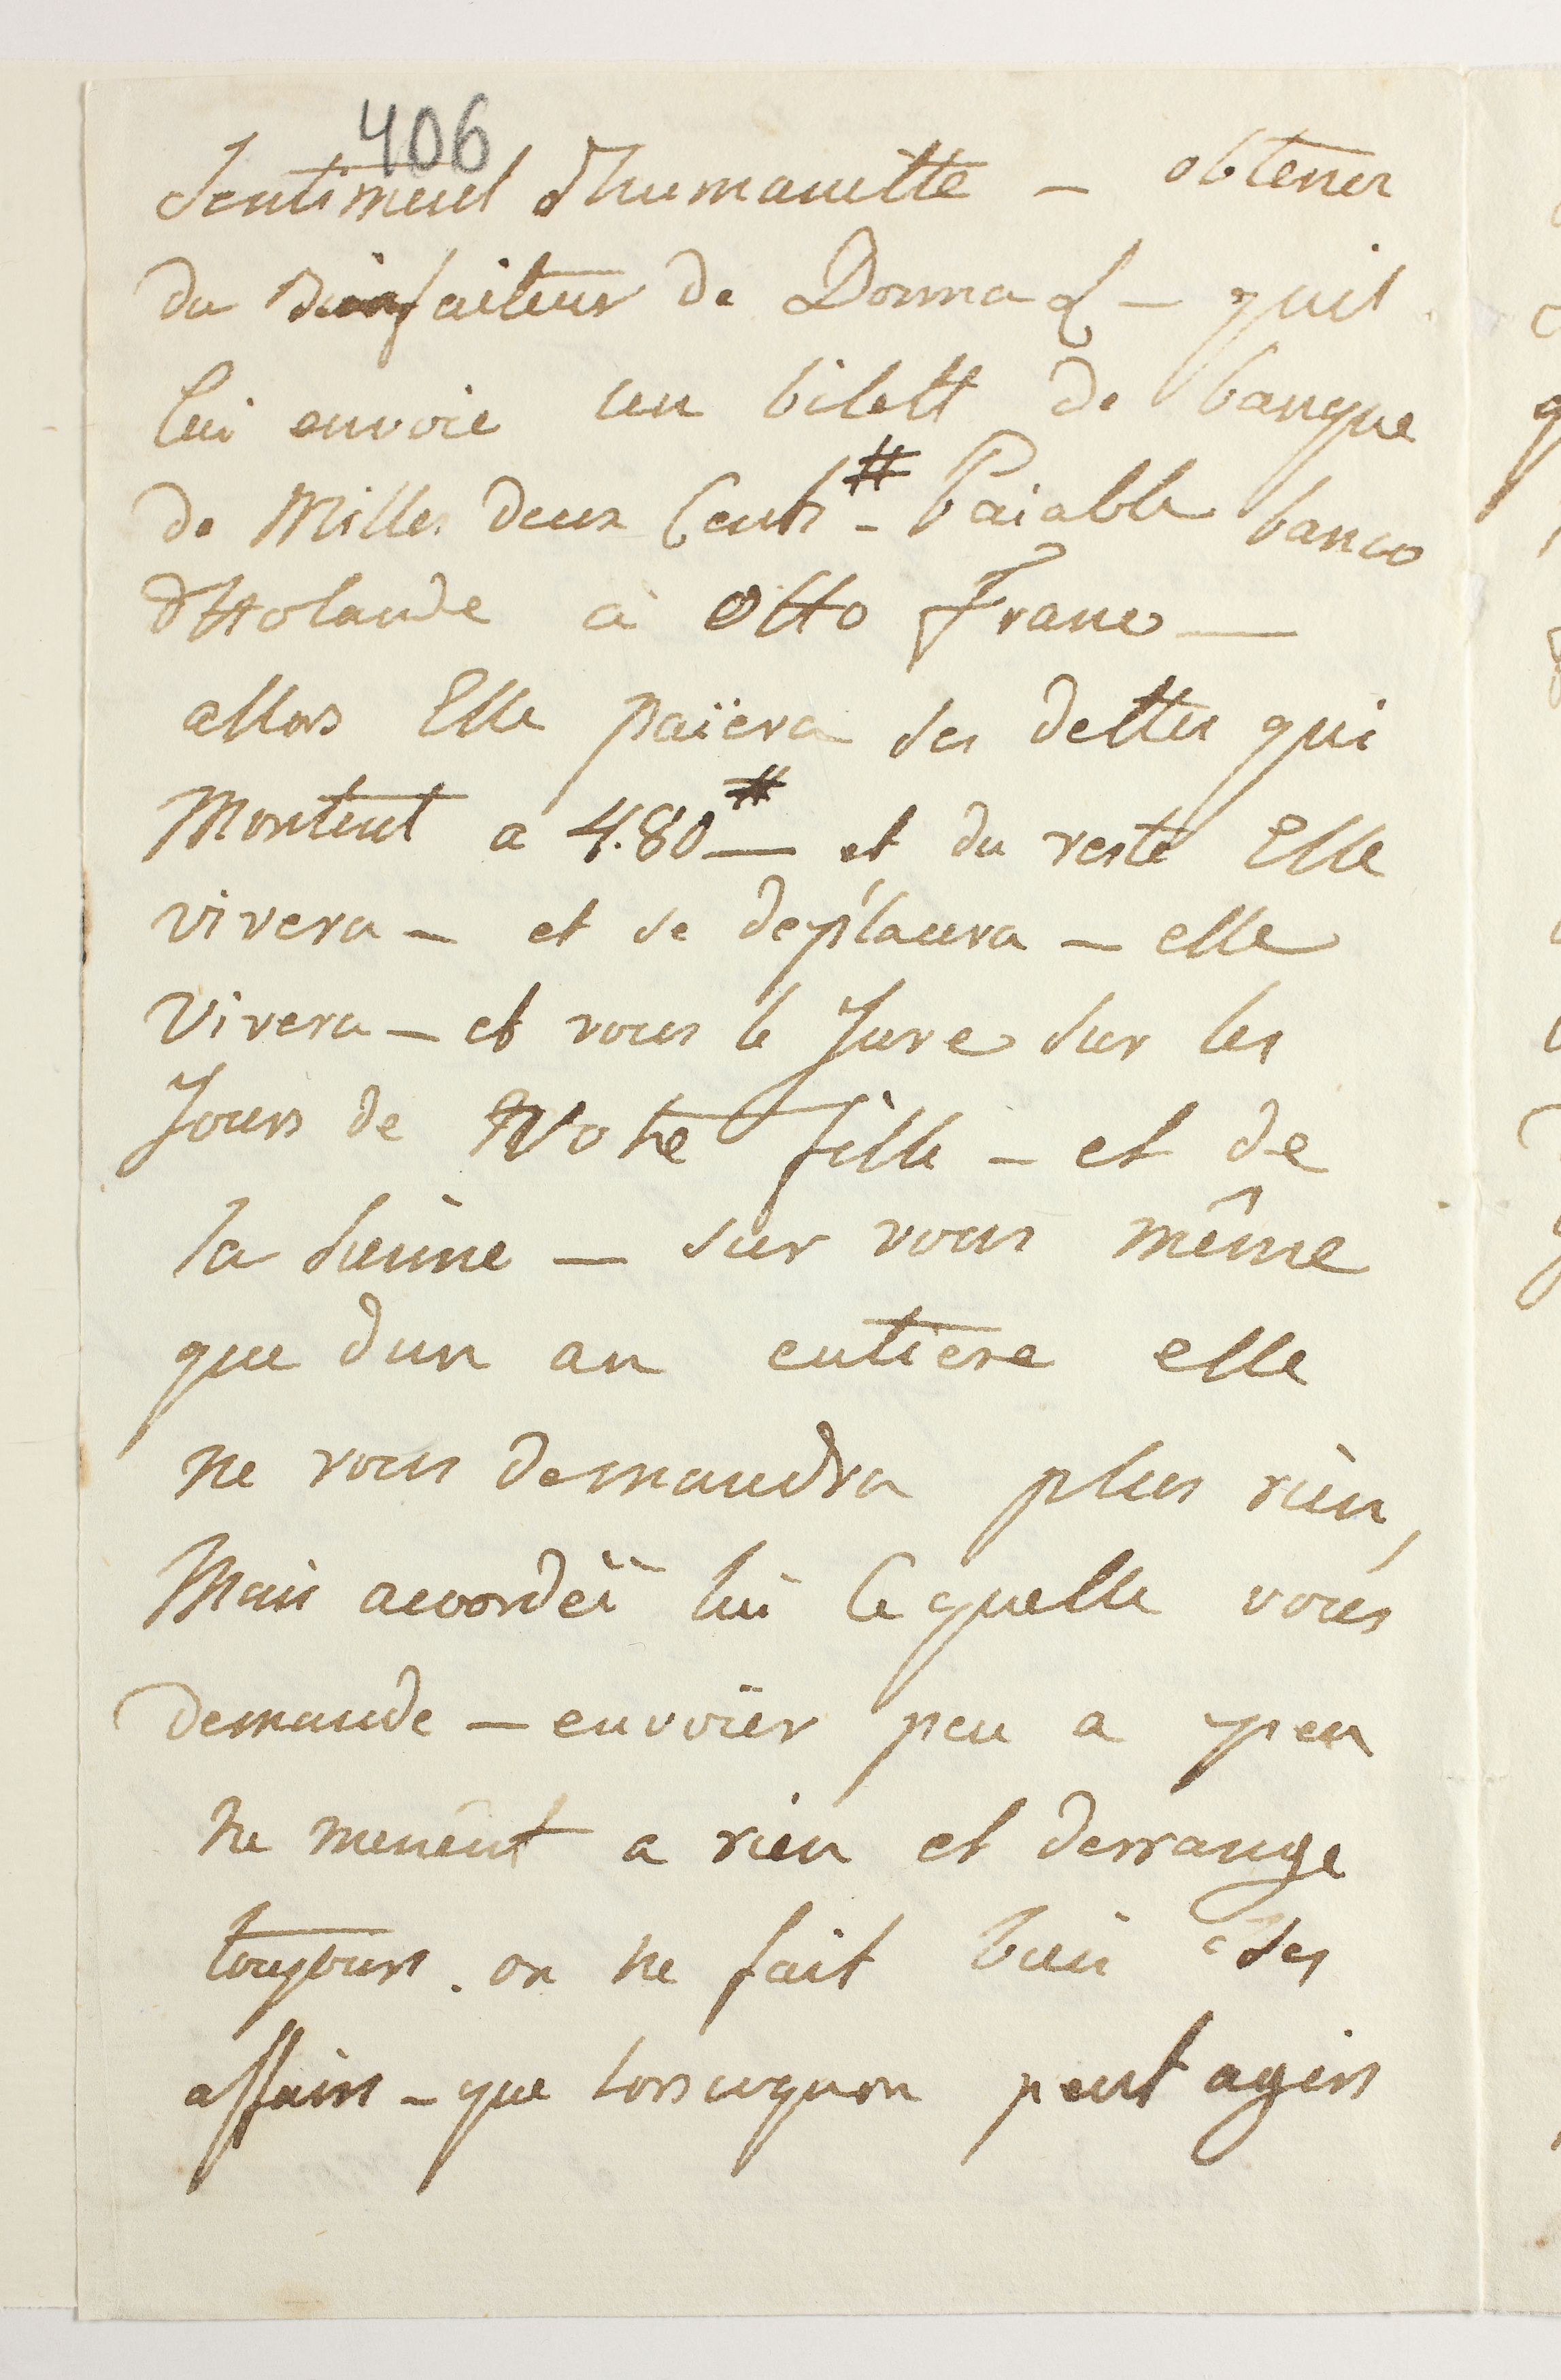 406
Sentiment d'humanitte – obtener
du bienfaiteur de Donna L – quil
lui envoie un bilett de banque
de Mille deux Cents # – Paiable banco
d'Holande à Otto Franc —
allors Elle païera ses dettes qui
Montent a 480 # — et du reste Elle
vivera – et se deplaura – elle
vivera – et vous le Jure sur les
Jours de Votre fille – et de
la sienne – sur vous même
que d'un an entiere elle
ne vous demandra plus rien,
Mais accordéi lui ce quelle vous
demande – envoier peu a peu
ne menent a rien et derrange
toujours. on ne fait bien ses
affairs – que lorsuquon peut agirs